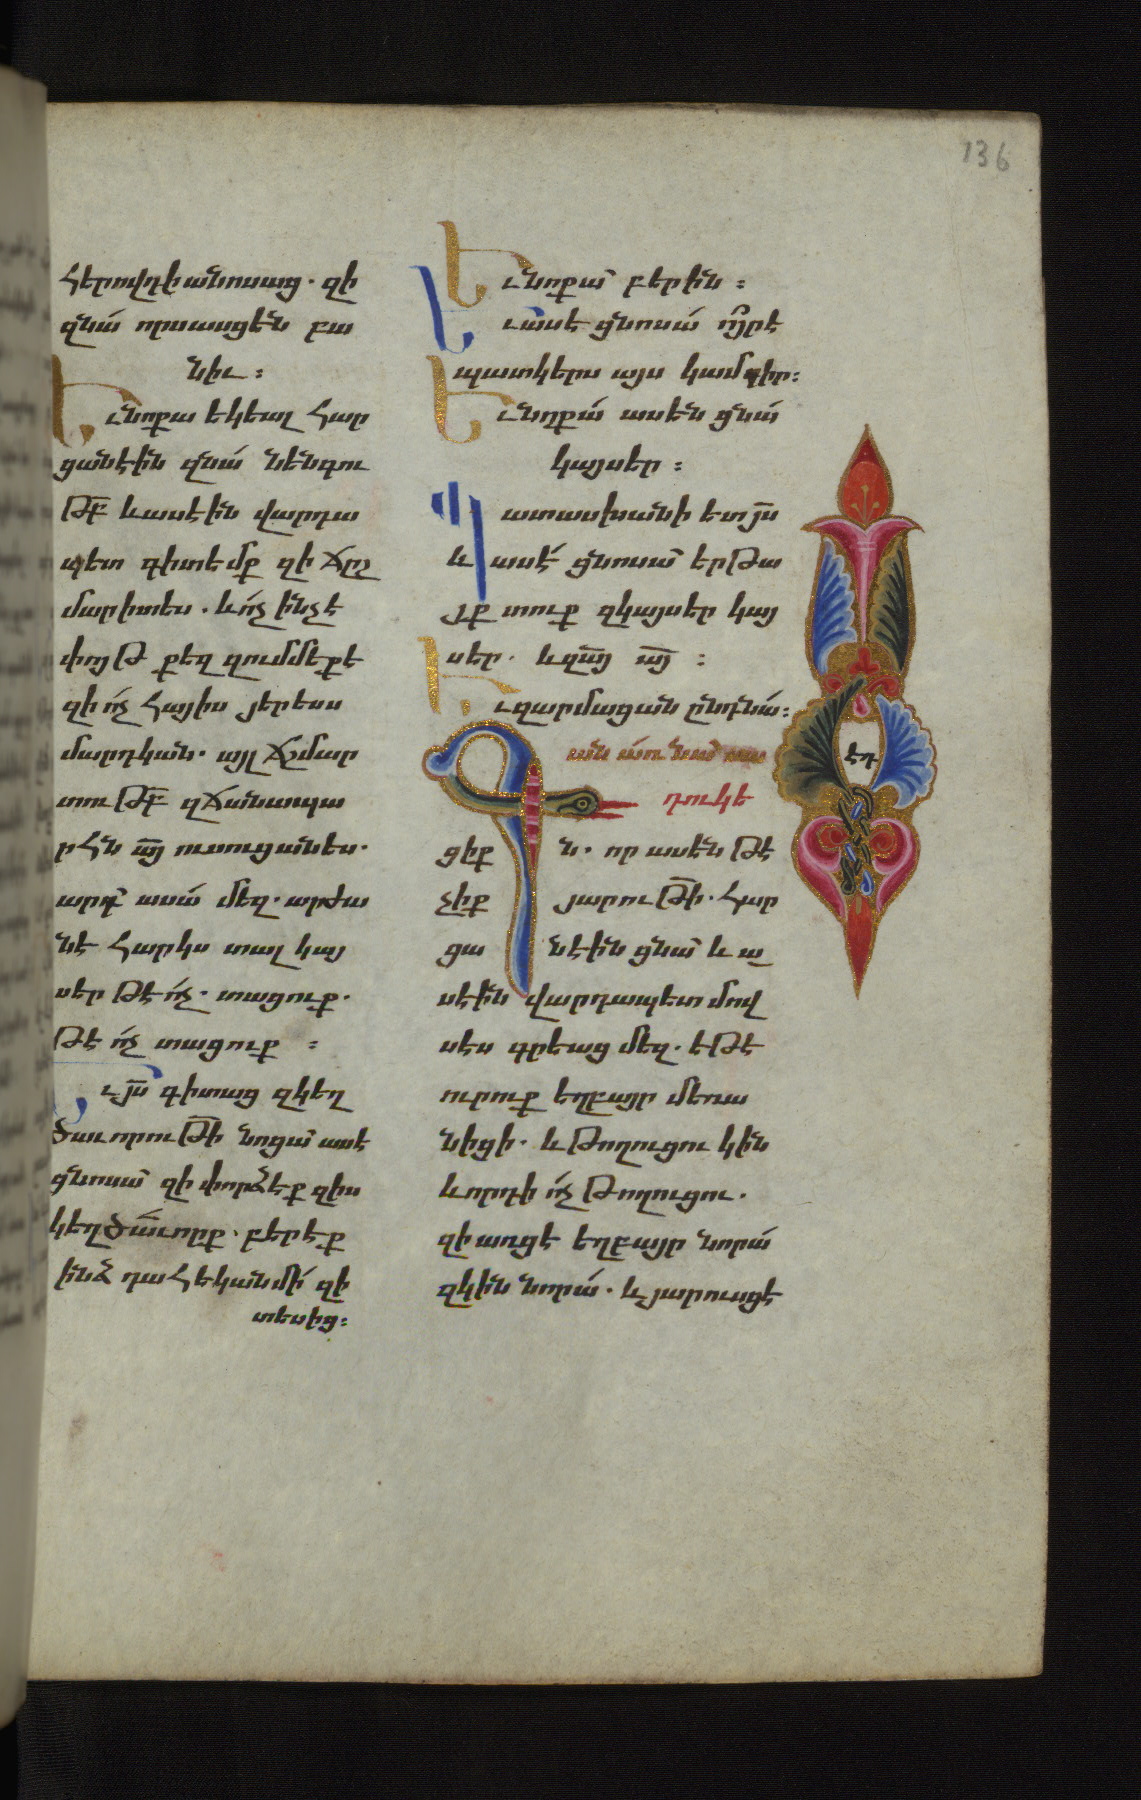 136
հերովդիանոսաց. զի
զնա՛ որսասցեն բա
նիւ :
Ենոքա եկեալ հար
ցանէին զնա՛ նենգու
թբ̅ և ասէին վարդա
պետ գիտեմք զի ճըշ
մարիտես. և ո՛չ ինչ է
փոյթ քեզ զումմեքէ
զի ո՛չ հայիս յերեսս
մարդկան. այլ ճշմար
տութբ̅ զճանապա
րհն ա̅յ ուսուցանես.
արդ՝ ասա՛ մեզ. արժա
նէ հարկս տալ կայ
սեր թէ ո՛չ. տացուք.
թէ ո՛չ տացուք :
Եւ յ̅ս գիտաց զկեղ
ծաւորութի̅ նոցա՝ ասէ
ցնոսա՝ զի փորձէք զիս
կեղծա՛ւորք. բերէք
ինձ դահեկան մի՛ զի
տեսից:
Ենոքա՝ բերին :
Եւ ասէ ցնոսա՛ ո՞յր է
պատկերս այս կամ գիր:
Ենոքա՛ ասեն ցնա՛
կայսեր :
Պատասխանի ետ յ̅ս
և ասէ՛ ցնոսա՝ երթա
յք տուք զկայսեր կայ
սեր. և զա̅յ ա̅յ :
Եւ զարմացան ընդ նա՛:
դուկե
ցիք ն. որ ասեն թէ
չիք յարութի̅. հար
ցա նէին ցնա՝ և ա
սէին վարդապետ մով
սէս գրեաց մեզ. եթէ
ուրուք եղբայր մեռա
նիցի. և թողուցու կին
և որդի ո՛չ թողուցու.
զի առցէ եղբայր նորա՛
զկին նորա՛. և յարուսցէ